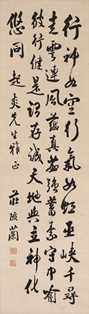 行神如空行氣如虹巫峽千尋
走雲連風飲真茹強蓄素守中喻
彼行健是謂存誠天地與立神化
悠同 先生雅正 莊陔蘭